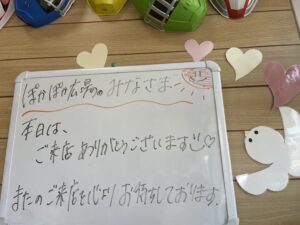 ぽかぽか広場の。みなさま
本日は、
ご来店ありがとうございます
またのご来店を心より お待ちしております。